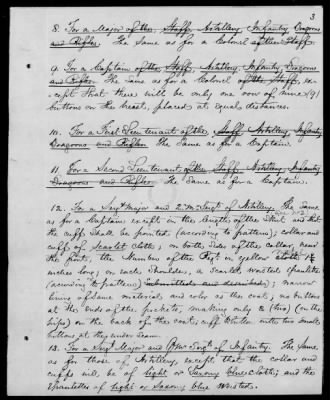 3
8. For a Major of the Staff, Artillery, Infantry, Dragoons
and Rifles. The same as for a Colonel of the Staff.
9. For a Captain of the Staff, Artillery, Infantry, Dragoons
and Rifles. The same as for a Colonel of the Staff, ex-
cept that there will be only one row of nine (9)
buttons on the breast, placed at equal distances.
10. For a First Lieutenant of the Staff, Artillery, Infantry,
Dragoons and Rifles. The same as for a Captain.
11. For a Second Lieutenant of the Staff, Artillery, Infantry,
Dragoons and Rifles. The same as for a Captain.
12. For a Sergt Major and Q. Mr. Sergt of Artillery. The same
as for a Captain except in the length of the Skirt and that
the cuff shall be pointed (according to pattern); collar and
cuff of Scarlet Cloth; on both sides of the collar, near
the front, the Number of the Regt in yellow
inches long; on each shoulder, a Scarlet worsted epaulette
(according to pattern) narrow
lining of same material and color as the coat; no buttons
at the ends of the pockets, making only (two) (on the
hips) on the back of the coat; cuff button with two small
buttons at the under seam.
13. For a Sergt Major and Q Mr Sergt of Infantry. The same
as for those of Artillery, except that the collar and
cuffs will be of light or Saxony blue cloth; and the
Epaulettes of light or Saxony blue worsted.